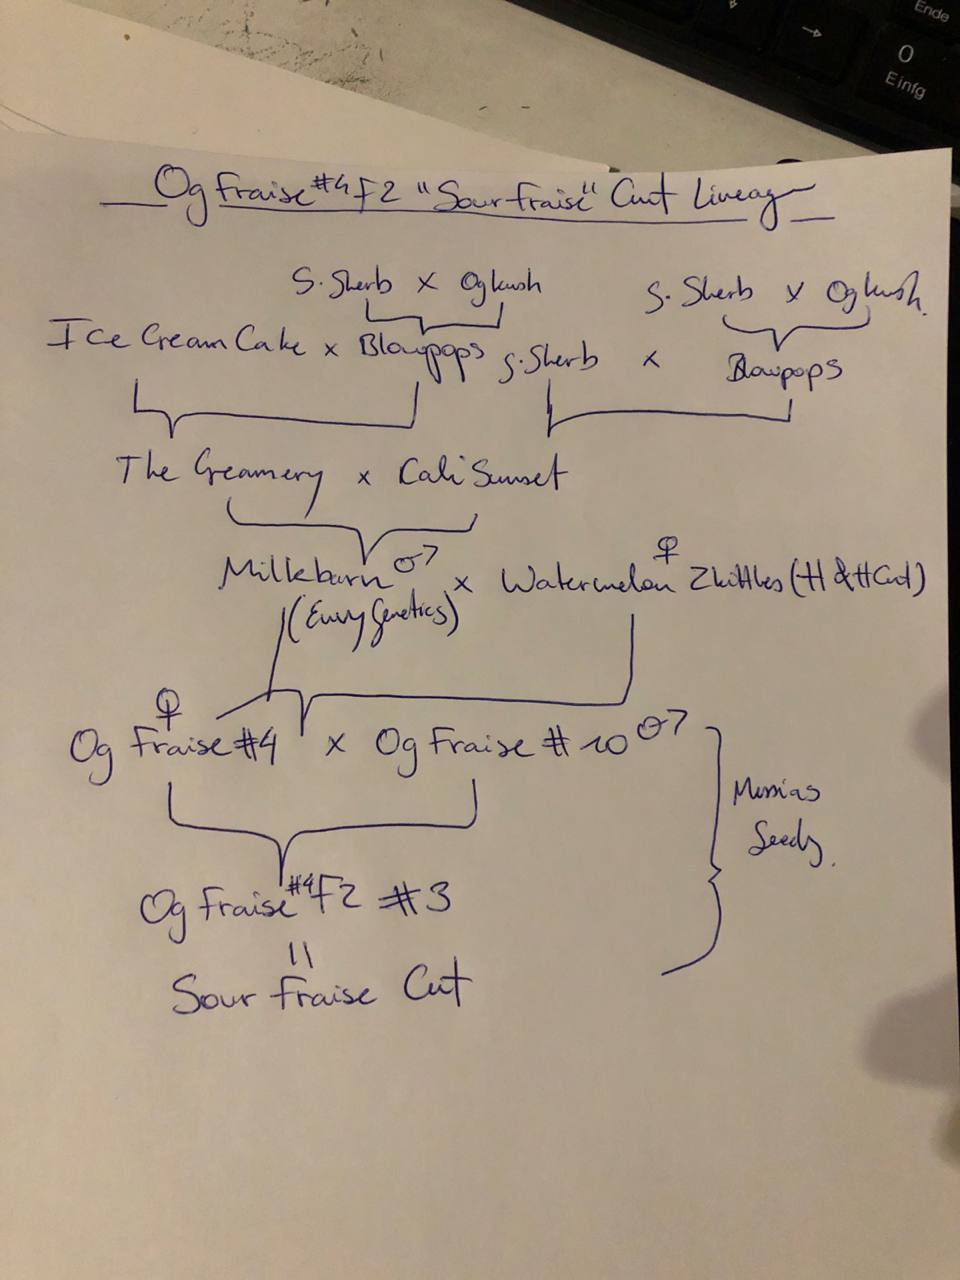 Og Fraise #4 F2 "Sour Fraise" Cut Lineag
S. Sherb x Og kush
S. Sherb x Og kush.
Ice Cream Cake x Blowpops
S. Sherb x Blowpops
The Creamery x Cali Sunset
Milkbarn ♂ x Watermelon ♀ Zkittles (H & H Cut)
(Envy Genetics)
Og Fraise #4 ♀ x Og Fraise #10 ♂
Messias
Seeds.
Og Fraise #4 F2 #3
=
Sour Fraise Cut
Ende
0
Einfg